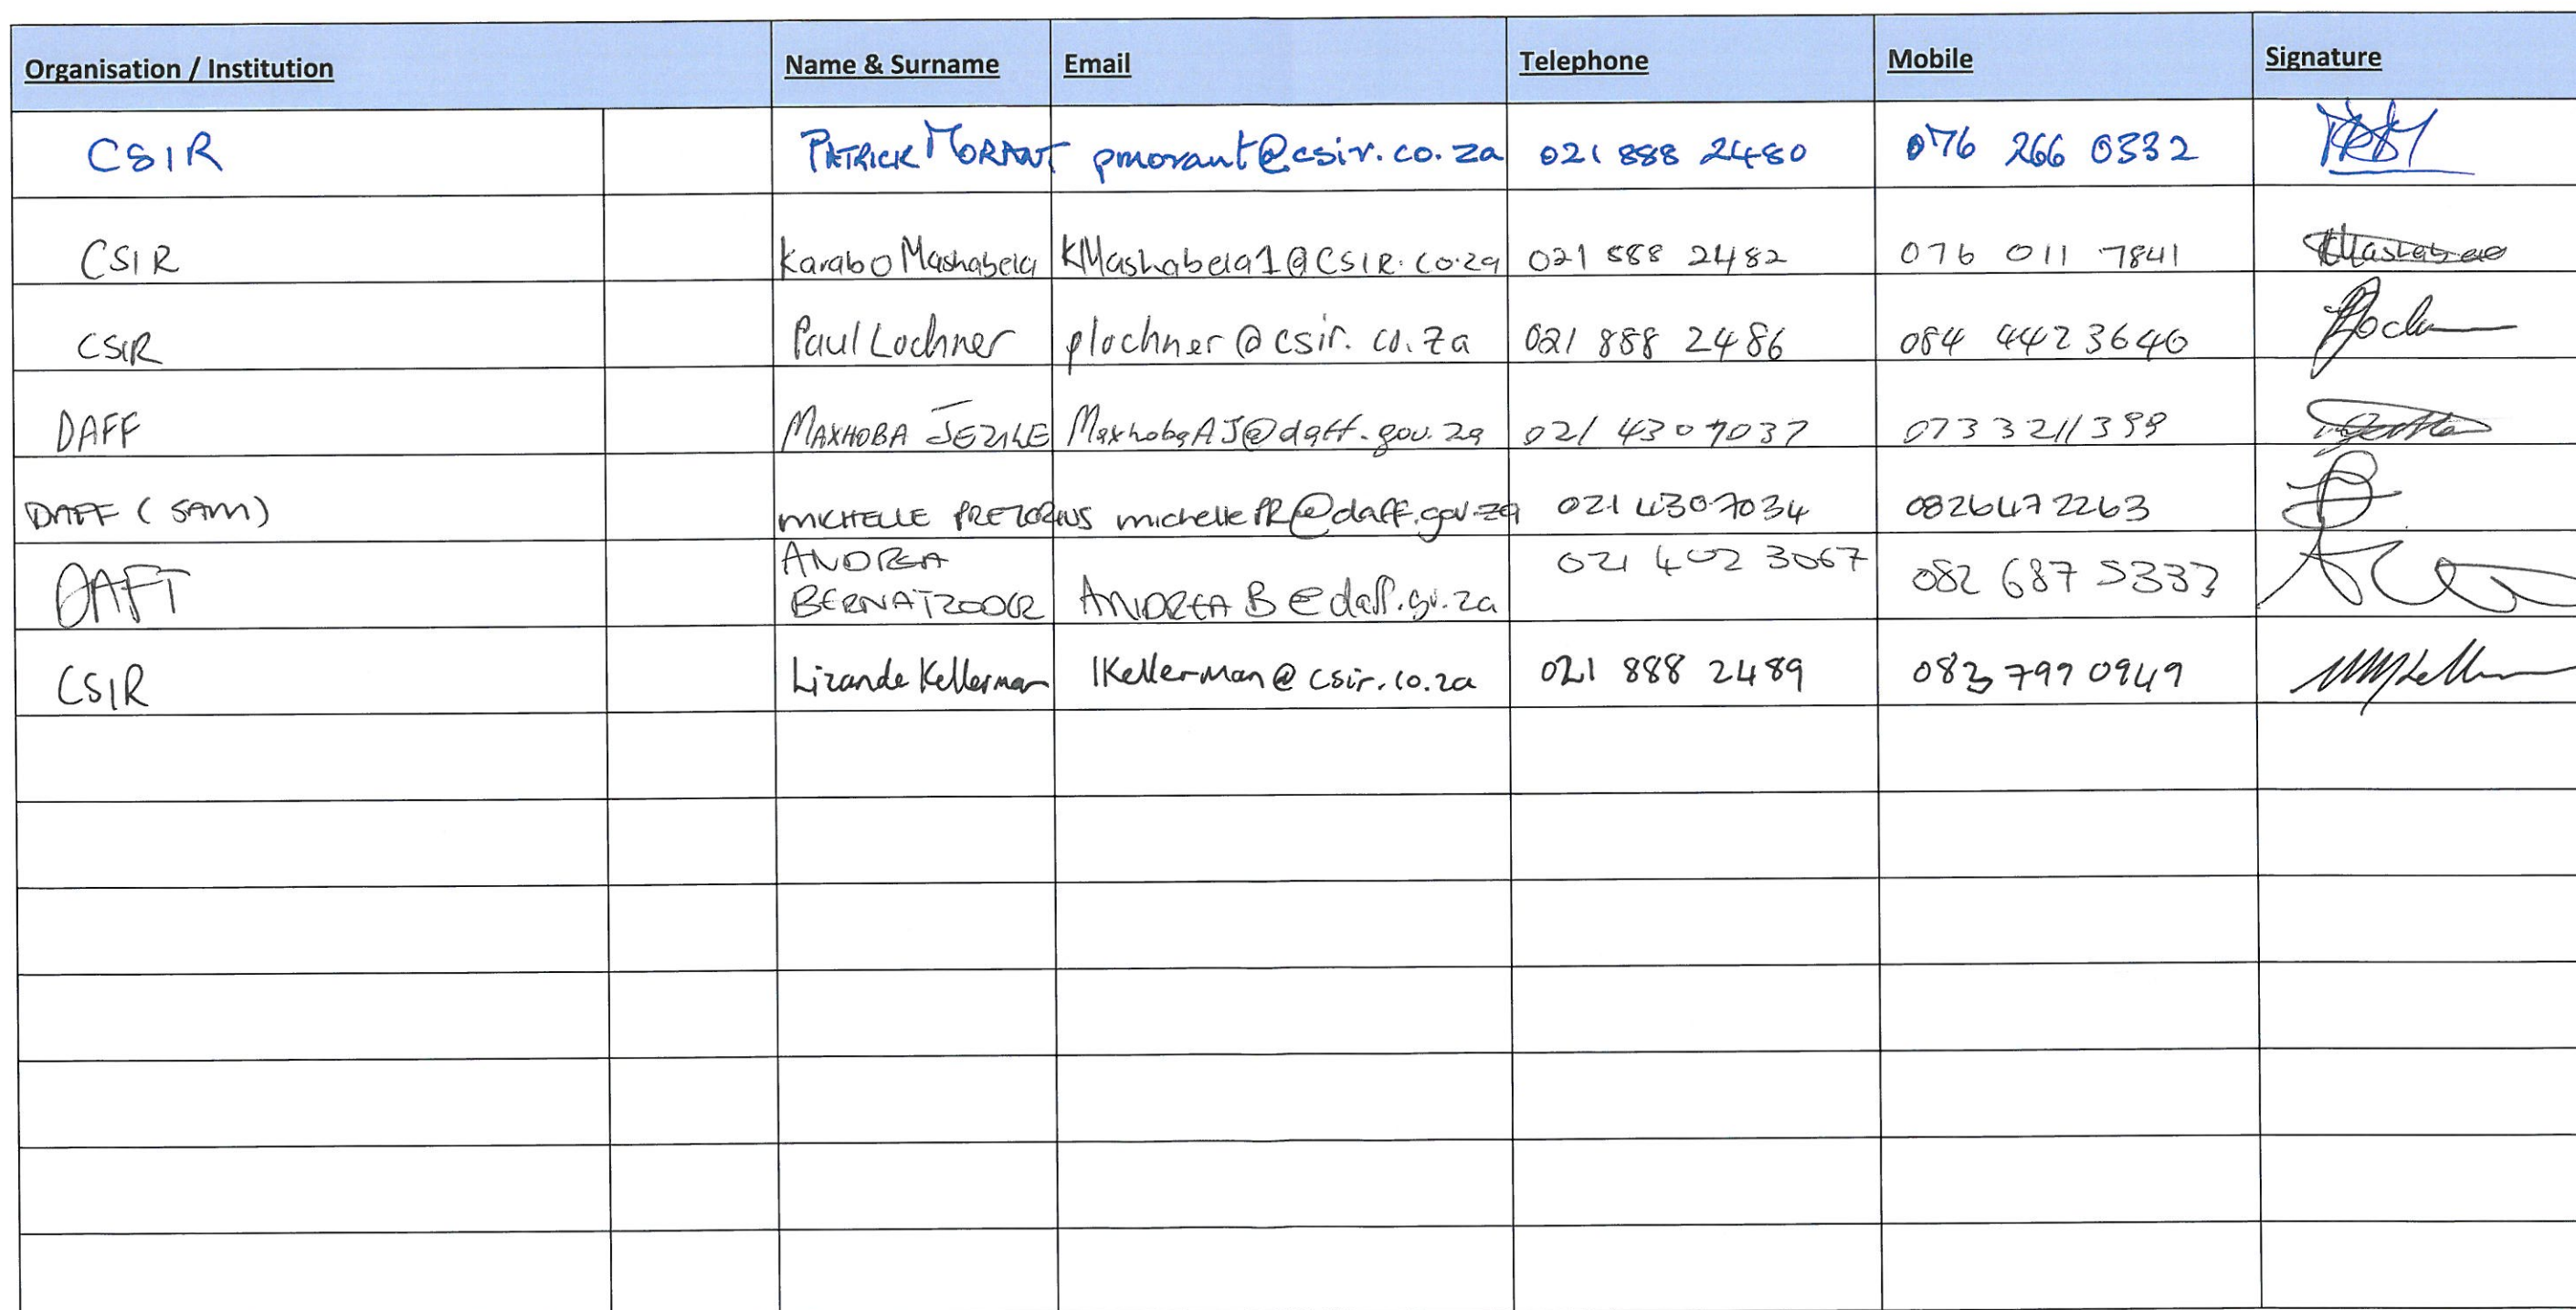 Organisation / Institution Name & Surname Email Telephone Mobile Signature
CSIR PATRICK MORANT pmorant@csir.co.za 021 888 2480 076 266 0332
CSIR Karabo Mashabela KMashabela1@CSIR.co.za 021 888 2482 076 011 7841
CSIR Paul Lochner plochner@csir.co.za 021 888 2486 084 442 3646
DAFF MAXHOBA JEZILE MaxhobaAJ@daff.gov.za 021 430 7037 073 3211399
DAFF (SAM) MICHELLE PRETORIUS michellePR@daff.gov.za 021 4307034 0826472263
DAFF ANDREA 021 402 3067 082 687 5333
BERNATZEDER ANDREAB@daff.gv.za
CSIR Lizande Kellerman lKellerman@csir.co.za 021 888 2489 083 799 0949